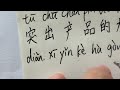 tū chū chǎn pǐn
突出产品的
diàn xī yǐn kè hù